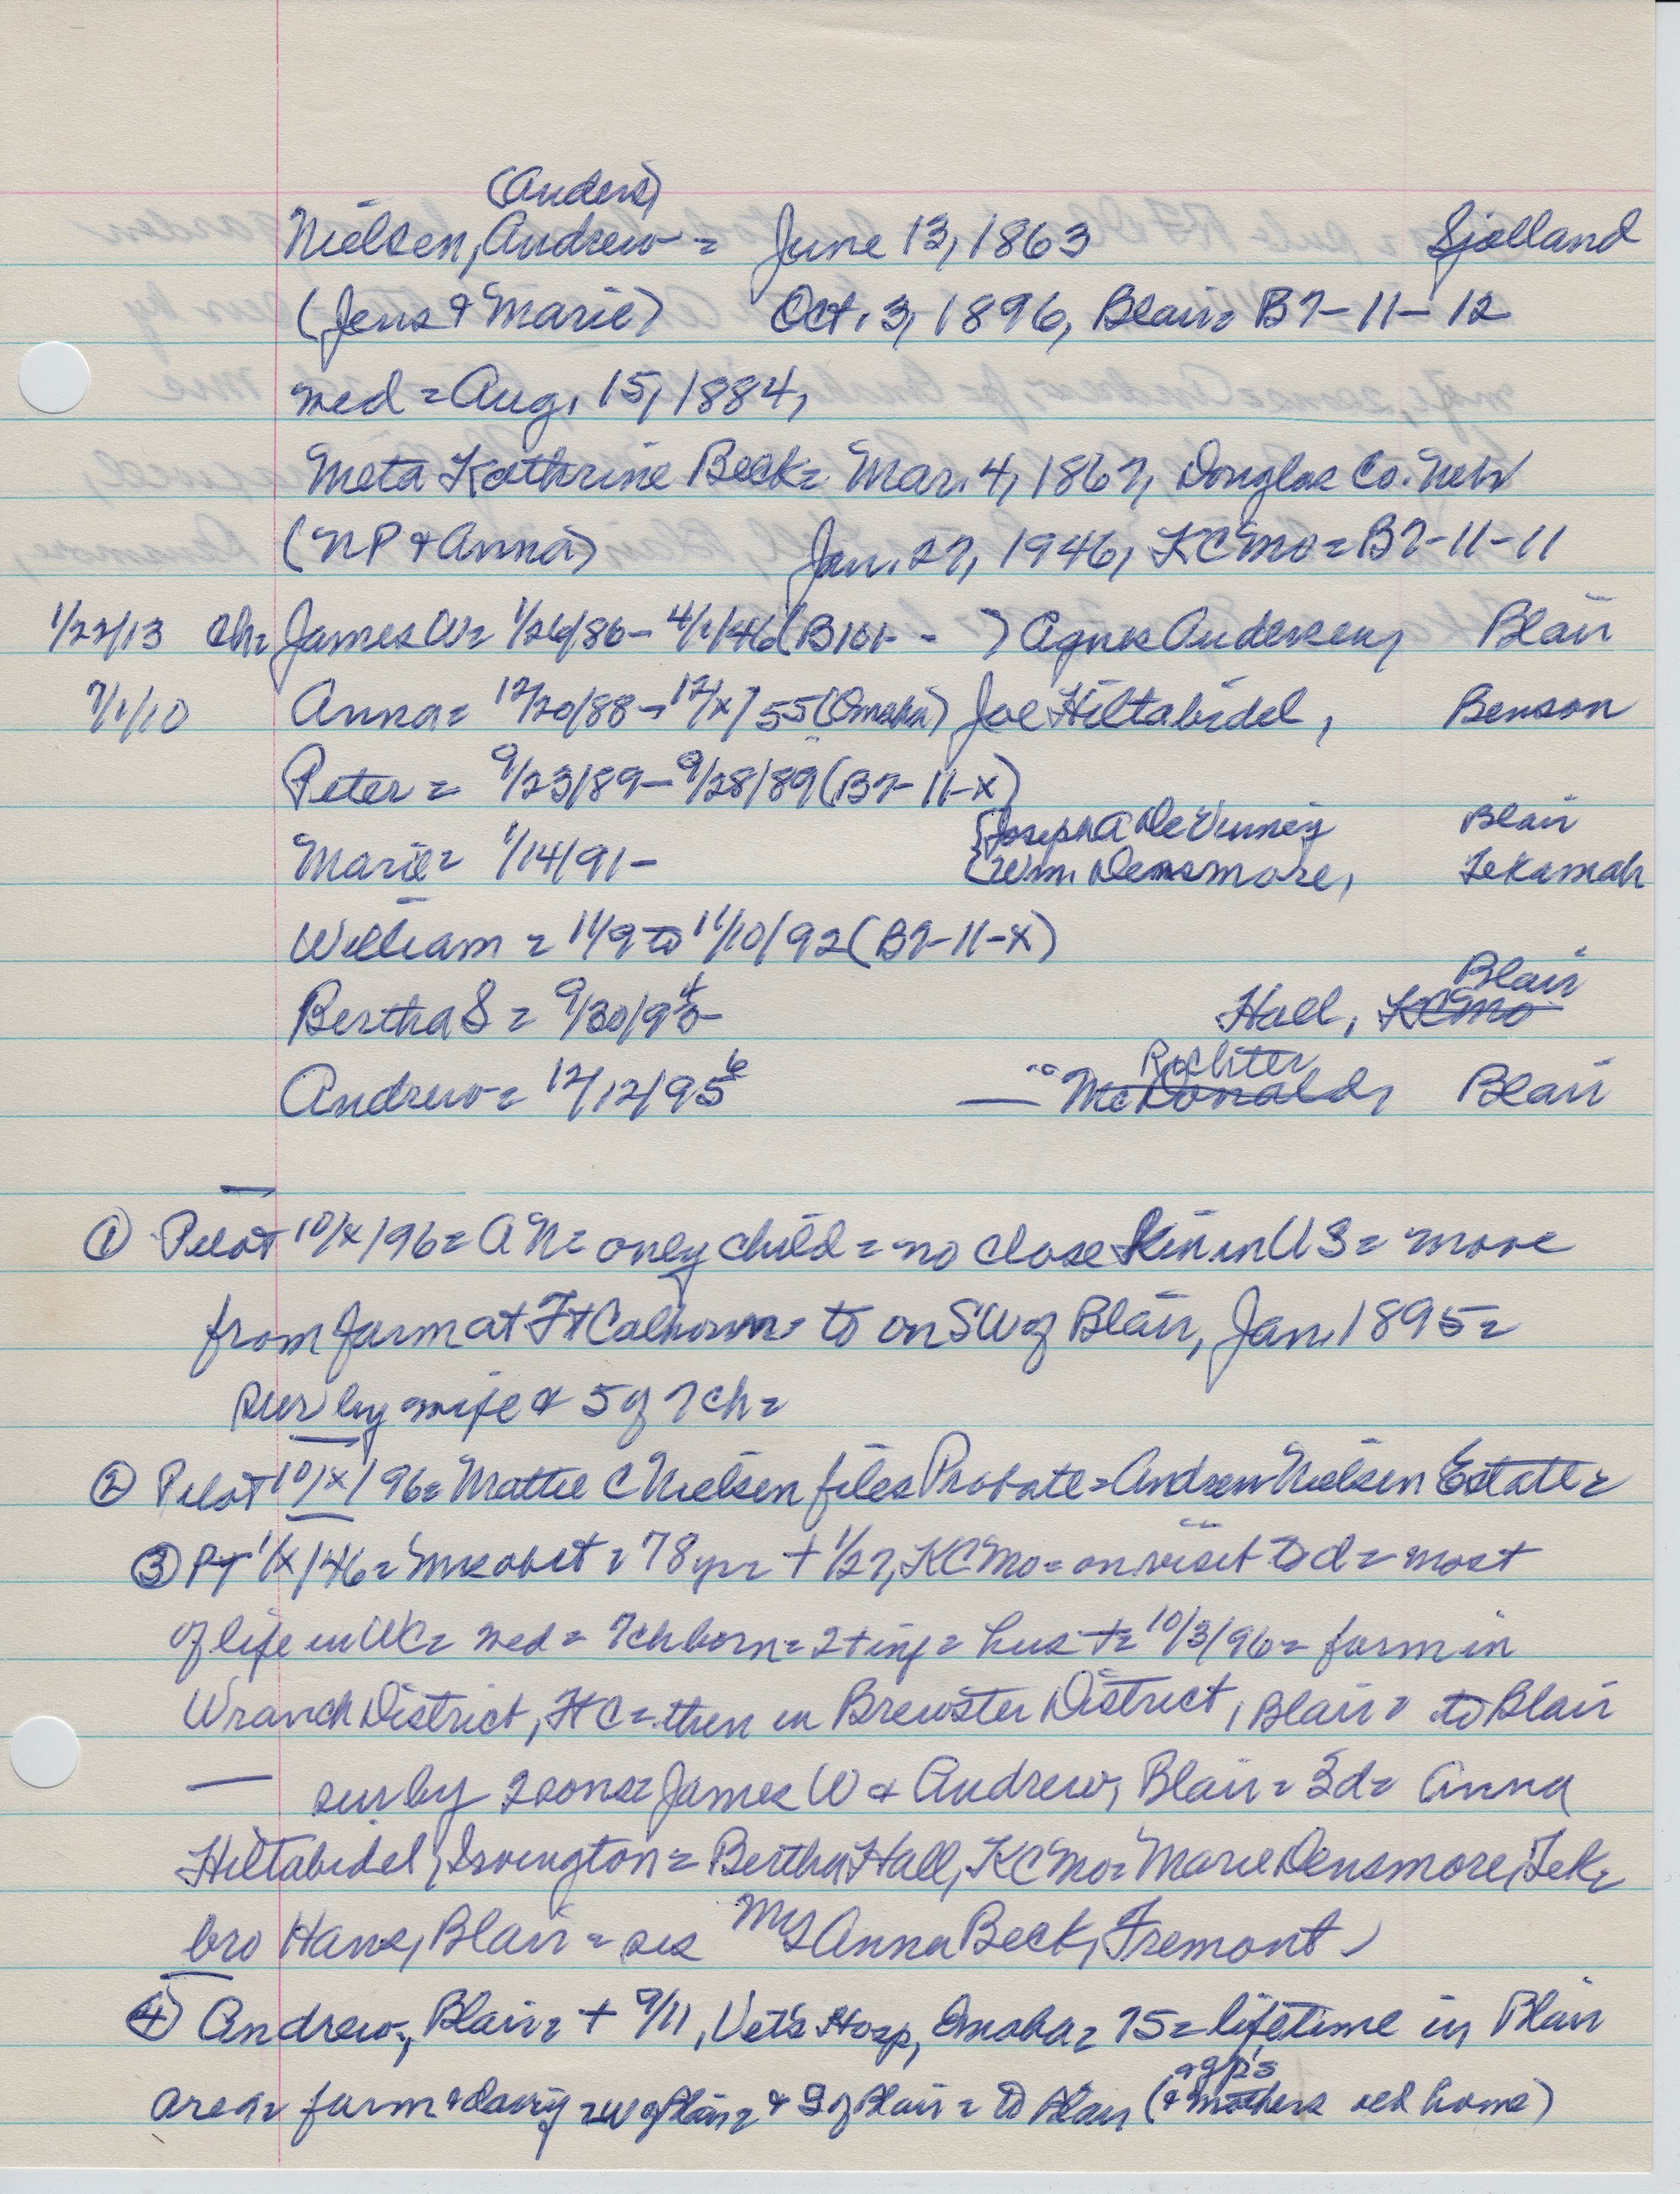 (Anders)
Nielsen, Andrew = June 13, 1863 Sjælland
(Jens & Marie) Oct. 3, 1896, Blair = B7-11-12
med = Aug. 15, 1884,
Meta Kathrine Beck = Mar. 4, 1867, Douglas Co. Neb
(NP & Anna) Jan. 27, 1946, KCMo = B7-11-11
1/22/13 ch = James W = 1/26/86 - 4/1/46 (B101- - ) Agnes Andersen, Blair
7/1/10 Anna = 12/20/88 - 12/x/55 (Omaha) Joe Hiltabidel, Benson
Peter = 9/23/89 - 9/28/89 (B7-11-x)
{Joseph A DeVinney Blair
Marie = 1/14/91 - {Wm. Densmore, Tekamah
William = 11/9 to 11/10/92 (B7-11-x)
Blair
Bertha S = 9/30/93 4 - Hall, KCMo
Richter
Andrew = 12/12/95 6 — McDonald, Blair
① Pilot 10/x/96 = AN = only child = no close kin in US = move
from farm at Ft Calhoun = to on SW of Blair, Jan. 1895 =
sur by wife & 5 of 7 ch =
② Pilot 10/x/96 = Mattie C Nielsen files Probate = Andrew Nielsen Estate =
③ PT 1/x/46 = obit = 78 yr = + 1/27, KCMo = on visit to d = most
of life in WC = med = 7 ch born = 2 + inf = hus + = 10/3/96 = farm in
Wranch District, Ft C = then in Brewster District, Blair = to Blair
— sur by 2 sons = James W & Andrew, Blair = 3d = Anna
Hiltabidel, Irvington = Bertha Hall, KCMo = Marie Densmore, Tek =
bro Hans, Blair = sis Mrs Anna Beck, Fremont)
④ Andrew, Blair = + 9/11, Vets Hosp, Omaha = 75 = lifetime in Blair
& gp's
area = farm & dairy = W of Blair = & S of Blair = to Blair (& mothers old home)